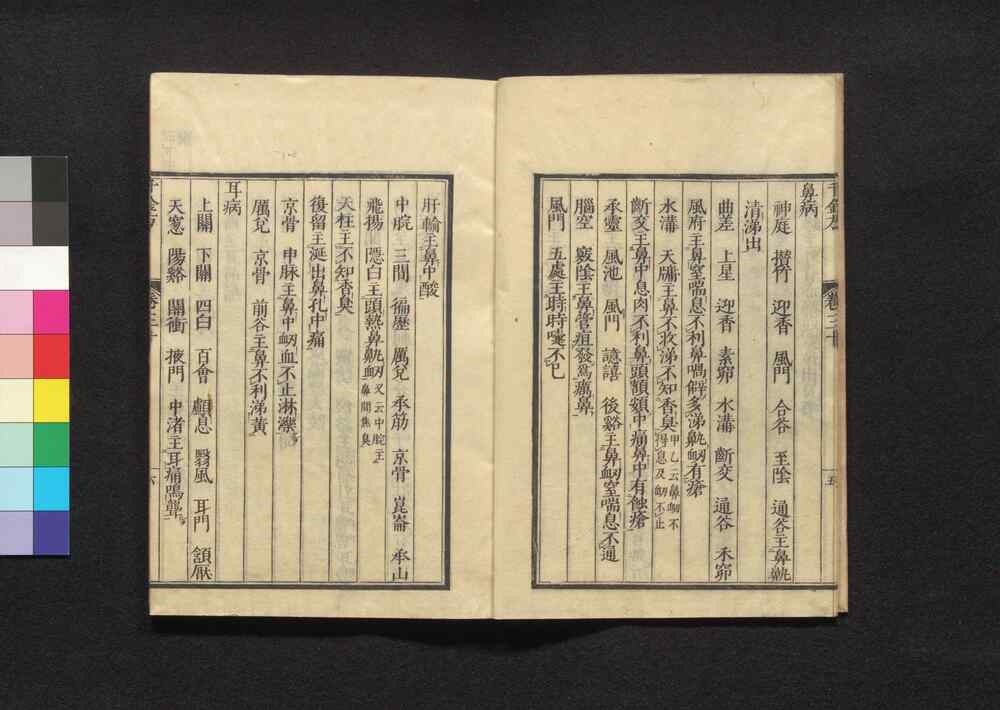 鼻病
神庭 攢竹 迎香 風門 合谷 至陰 通谷主鼻鼽
清涕出
曲差 上星 迎香 素窌 水溝 齗交 通谷 禾窌
風府主鼻窒喘息不利鼻喎僻多涕鼽衂有瘡
水溝 天牖主鼻不收涕不知香臭甲乙云鼻衂不得息及衂不止
齗交主鼻中息肉不利鼻頭額頞中痛鼻中有蝕瘡
承靈 風池 風門 譩譆 後谿主鼻衂窒喘息不通
腦空 竅陰主鼻管疽發爲癘鼻
風門 五處主時時嚏不已
肝輸主鼻中酸
中脘 三間 徧歷 厲兌 承筋 京骨 崑崙 承山
飛揚 隱白主頭熱鼻鼽衂又云中脘主鼻間焦臭
天柱主不知香臭
復留主涎出鼻孔中痛
京骨 申脉主鼻中衂血不止淋濼
厲兌 京骨 前谷主鼻不利涕黃
耳病
上關 下關 四白 百會 顱息 翳風 耳門 頷厭
天窻 陽谿 關衝 掖門 中渚主耳痛鳴聾